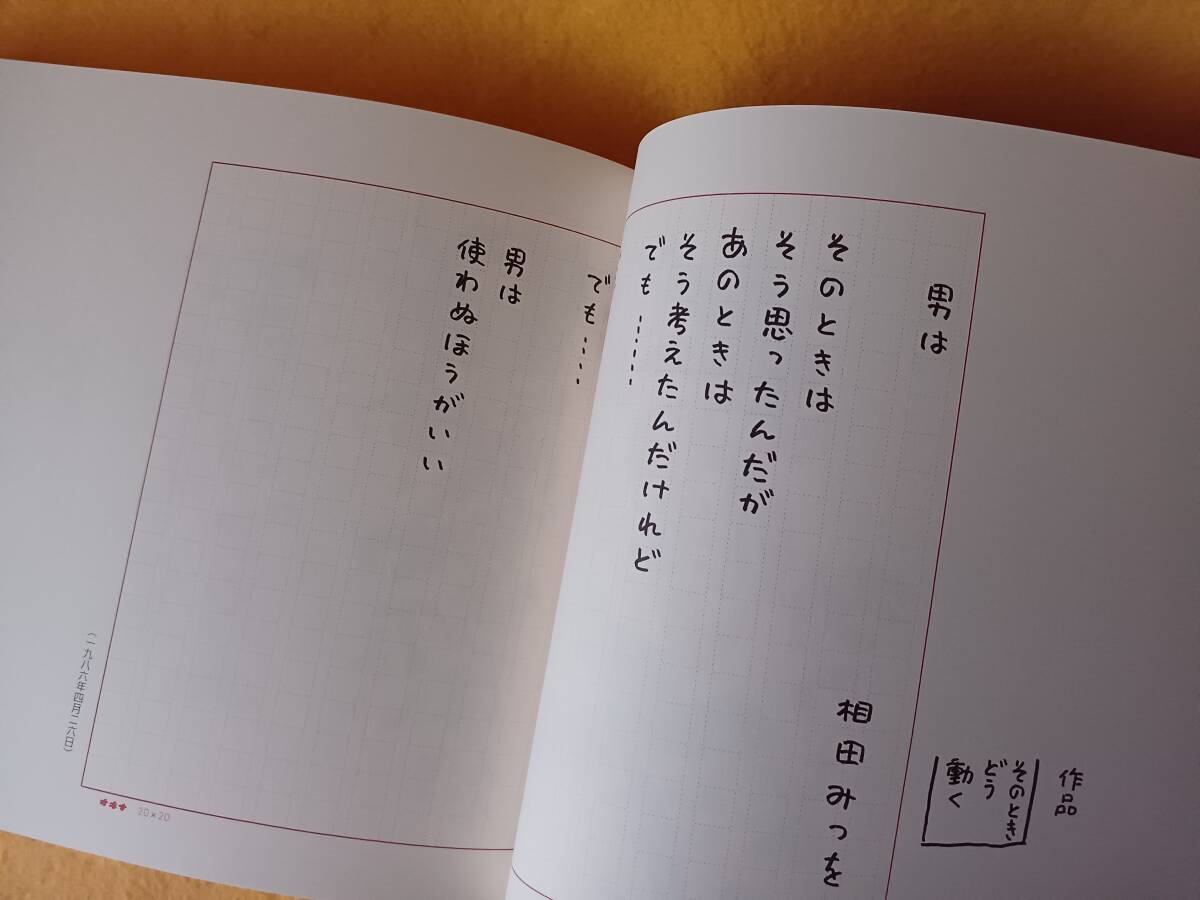 作品
そのとき
どう
動く
男は
相田みつを
そのときは
そう思ったんだが
あのときは
そう考えたんだけれど
でも……
でも……
男は
使わぬほうがいい
(一九八六年四月二六日)
20×20